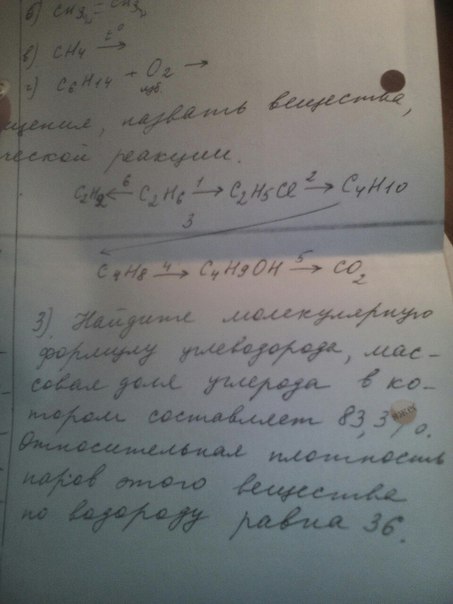 б) CH3 – CH3
в) CH4 t° →
г) C6H14 + O2 изб. →
щения, назвать вещества,
ческой реакции.
C2H2 ←6 C2H6 1→ C2H5Cl 2→ C4H10
3
C4H8 4→ C4H9OH 5→ CO2
3) Найдите молекулярную
формулу углеводорода, мас-
совая доля углерода в ко-
тором составляет 83,3%.
Относительная плотность
паров этого вещества
по водороду равна 36.